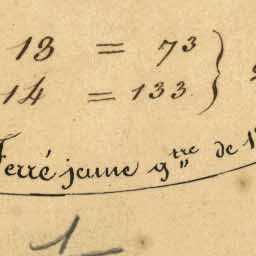 13 = 73
14 = 133
Ferré jaune g^tre de 1
1